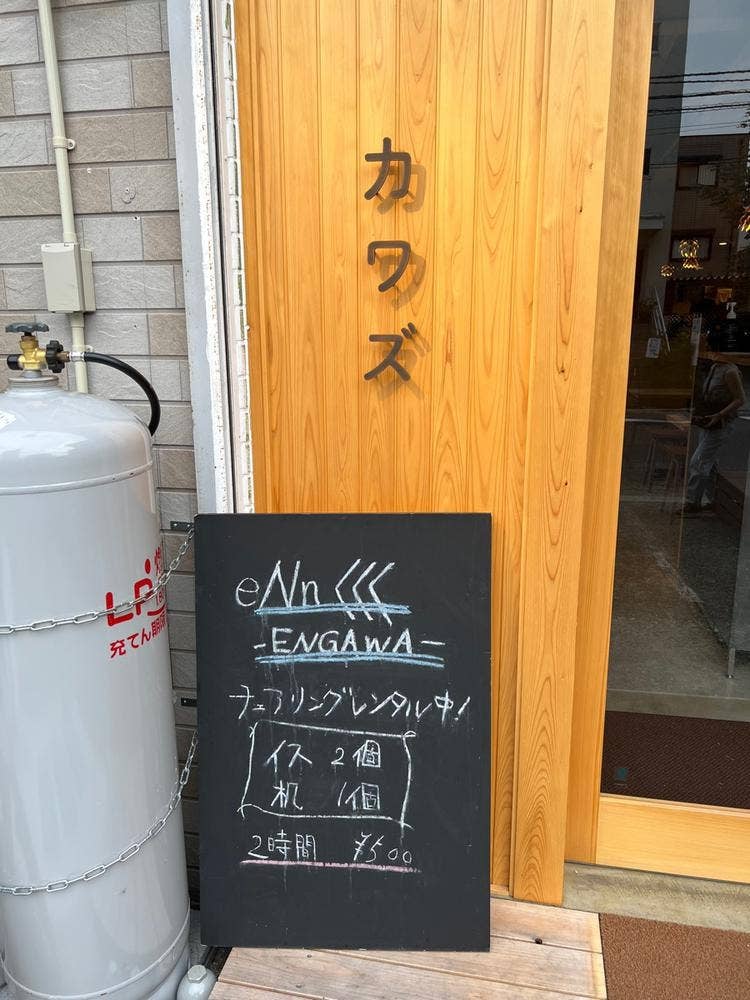 カワズ
eNn
-ENGAWA-
チェアリングレンタル中!
イス 2個
机 1個
2時間 ¥500